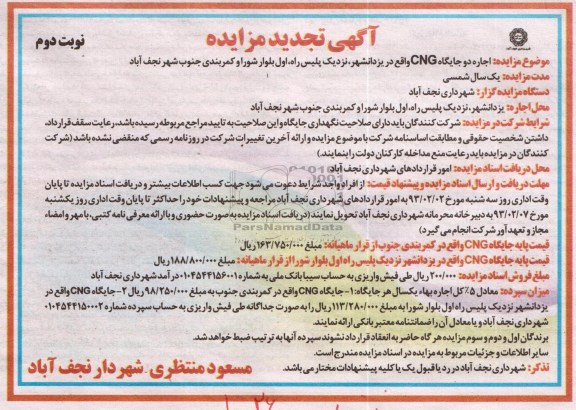 آگهی تجدید مزایده
نوبت دوم
موضوع مزایده: اجاره دو جایگاه CNG واقع در یزدانشهر، نزدیک پلیس راه، اول بلوار شورا و کمربندی جنوب شهر نجف آباد
مدت مزایده: یک سال شمسی
دستگاه مزایده گزار: شهرداری نجف آباد
محل اجاره: یزدانشهر، نزدیک پلیس راه، اول بلوار شورا و کمربندی جنوب شهر نجف آباد
شرایط شرکت در مزایده: شرکت کنندگان باید دارای صلاحیت نگهداری جایگاه و این صلاحیت به تایید مراجع مربوطه رسیده باشد، رعایت سقف قرارداد،
داشتن شخصیت حقوقی و مطابقت اساسنامه شرکت با موضوع مزایده و ارائه آخرین تغییرات شرکت در روزنامه رسمی که منقضی نشده باشد (شرکت
کنندگان در مزایده باید رعایت منع مداخله کارکنان دولت را بنمایند)
محل دریافت اسناد مزایده: امور قراردادهای شهرداری نجف آباد
مهلت دریافت و ارسال اسناد مزایده و پیشنهاد قیمت: از افراد واجد شرایط دعوت می شود جهت کسب اطلاعات بیشتر و دریافت اسناد مزایده تا پایان
وقت اداری روز سه شنبه مورخ ۹۳/۰۲/۰۲ به امور قراردادهای شهرداری نجف آباد مراجعه و پیشنهادات خود را حداکثر تا پایان وقت اداری روز یکشنبه
مورخ ۹۳/۰۲/۰۷ به دبیرخانه محرمانه شهرداری نجف آباد تحویل نمایند (دریافت اسناد مزایده به صورت حضوری و با ارائه معرفی نامه کتبی، با مهر و امضاء
مجاز و تعهدآور شرکت انجام می گیرد)
قیمت پایه جایگاه CNG واقع در کمربندی جنوب از قرار ماهیانه: مبلغ ۱۶۳/۷۵۰/۰۰۰ ریال
قیمت پایه جایگاه CNG واقع در یزدانشهر نزدیک پلیس راه اول بلوار شورا از قرار ماهیانه: مبلغ ۱۸۸/۸۰۰/۰۰۰ ریال
مبلغ فروش اسناد مزایده: ۲۰۰/۰۰۰ ریال طی فیش واریزی به حساب سیبا بانک ملی به شماره ۰۱۰۴۵۴۴۱۵۶۰۰۱ درآمد شهرداری نجف آباد
میزان سپرده: معادل ۵٪ کل اجاره بهاء یکسال هر جایگاه: ۱- جایگاه CNG واقع در کمربندی جنوب به مبلغ ۹۸/۲۵۰/۰۰۰ ریال ۲- جایگاه CNG واقع در
یزدانشهر نزدیک پلیس راه اول بلوار شورا به مبلغ ۱۱۳/۲۸۰/۰۰۰ ریال را به صورت جداگانه طی فیش واریزی به حساب سپرده شماره ۰۱۰۴۵۴۴۱۵۰۰۰۲
شهرداری نجف آباد و یا معادل آن را ضمانتنامه معتبر بانکی ارائه نمایند.
برندگان اول و دوم و سوم مزایده هرگاه حاضر به انعقاد قرارداد نشوند سپرده آنها به ترتیب ضبط خواهد شد.
سایر اطلاعات و جزئیات مربوط به مزایده در اسناد مزایده مندرج است.
تذکر: شهرداری نجف آباد در رد یا قبول یک یا کلیه پیشنهادات مختار می باشد.
مسعود منتظری _ شهردار نجف آباد
ParsNamadData